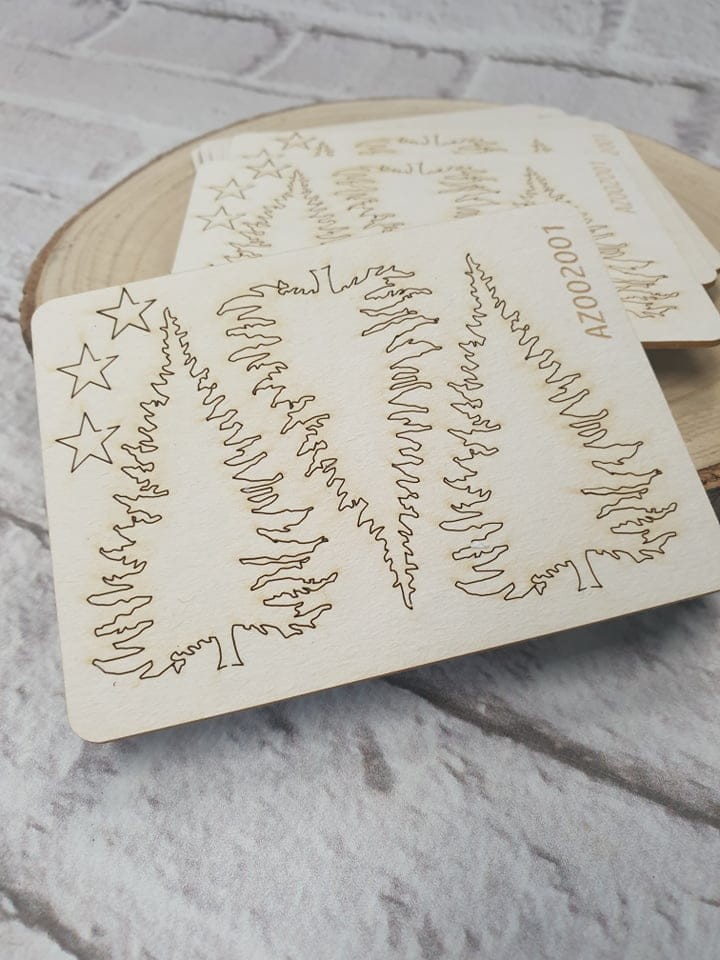 AZ002001
AZ002001